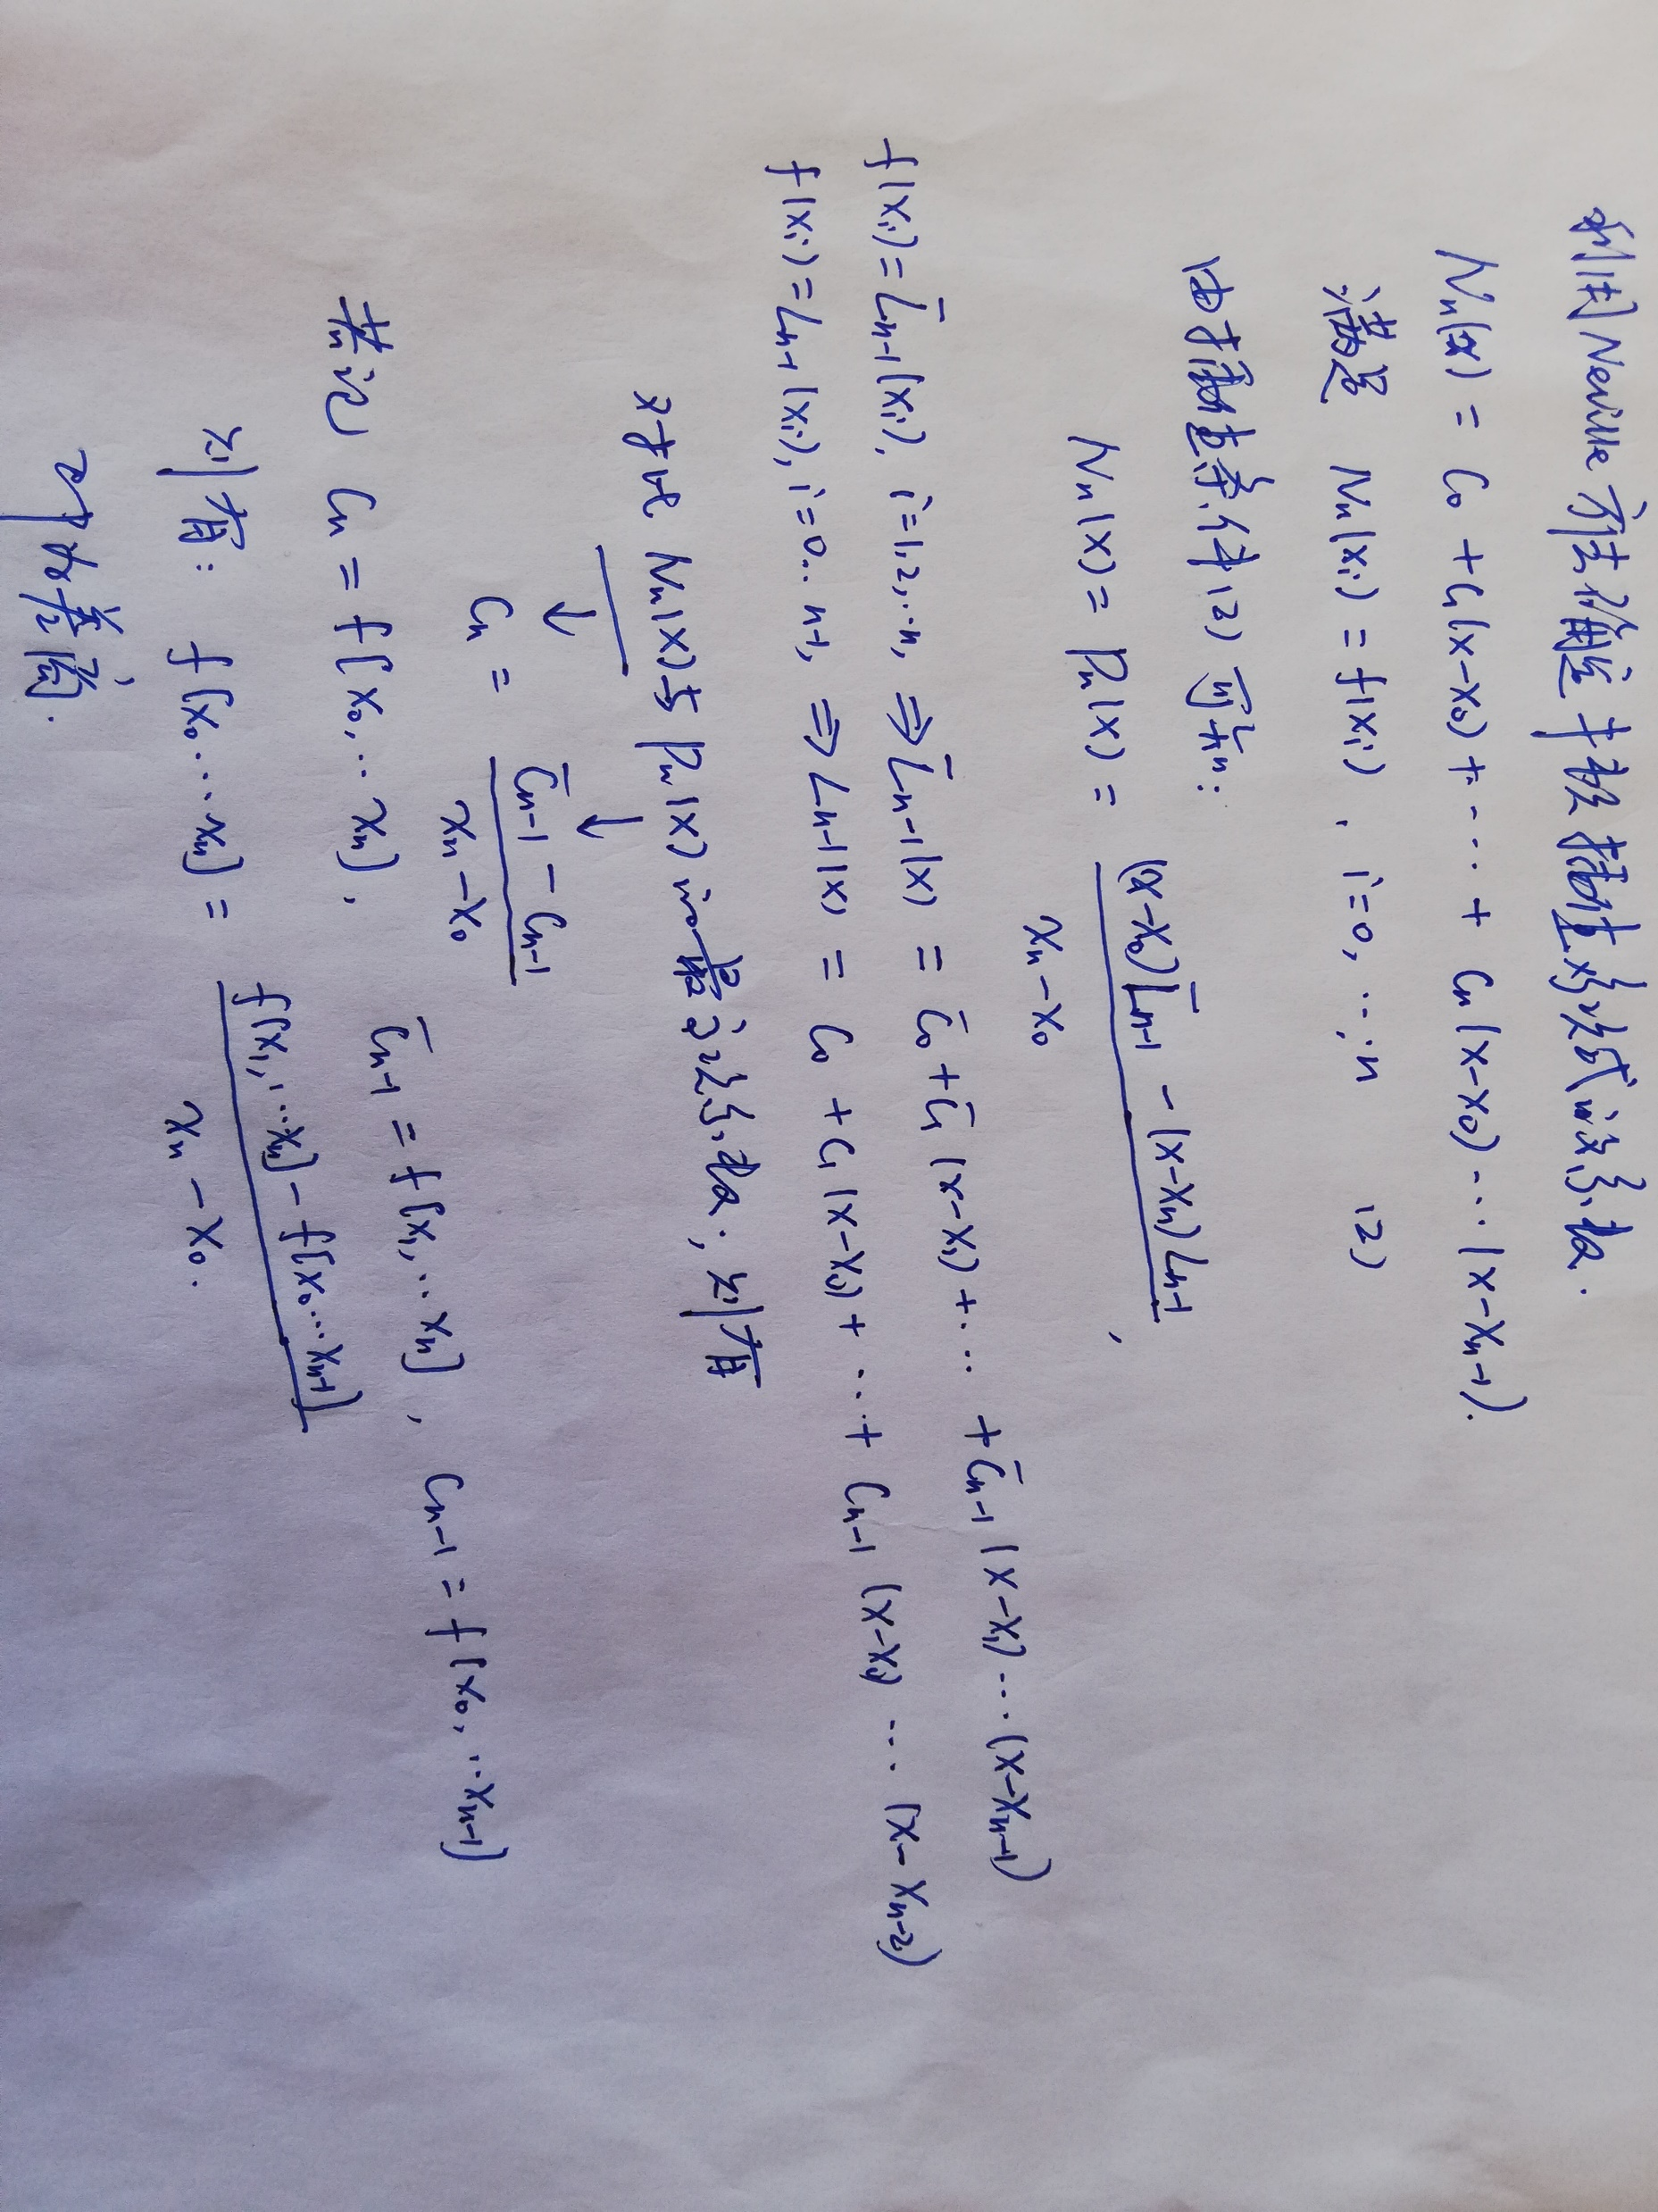 利用Neville方法确定牛顿插值多项式的系数.
Nn(x) = C0 + C1(x-x0) + ··· + Cn(x-x0)···(x-xn-1).
满足 Nn(xi) = f(xi), i=0, ···, n (2)
由插值条件(2)可知:
Nn(x) = Pn(x) = (x-x0)L̄n-1 - (x-xn)Ln-1 / xn-x0 ,
f(xi) = L̄n-1(xi), i=1,2,··n, ⇒ L̄n-1(x) = C̄0 + C̄1(x-x1) + ··· + C̄n-1(x-x1)···(x-xn-1)
f(xi) = Ln-1(xi), i=0..n-1, ⇒ Ln-1(x) = C0 + C1(x-x0) + ··· + Cn-1(x-x0)···(x-xn-2)
对比Nn(x)与Pn(x)的最高次系数, 则有
↓ ↓
Cn = C̄n-1 - Cn-1 / xn-x0
若记 Cn = f[x0,··xn], C̄n-1 = f[x1,··xn], Cn-1 = f[x0,··xn-1]
则有: f[x0···xn] = f[x1,··xn] - f[x0···xn-1] / xn-x0.
即为差商.